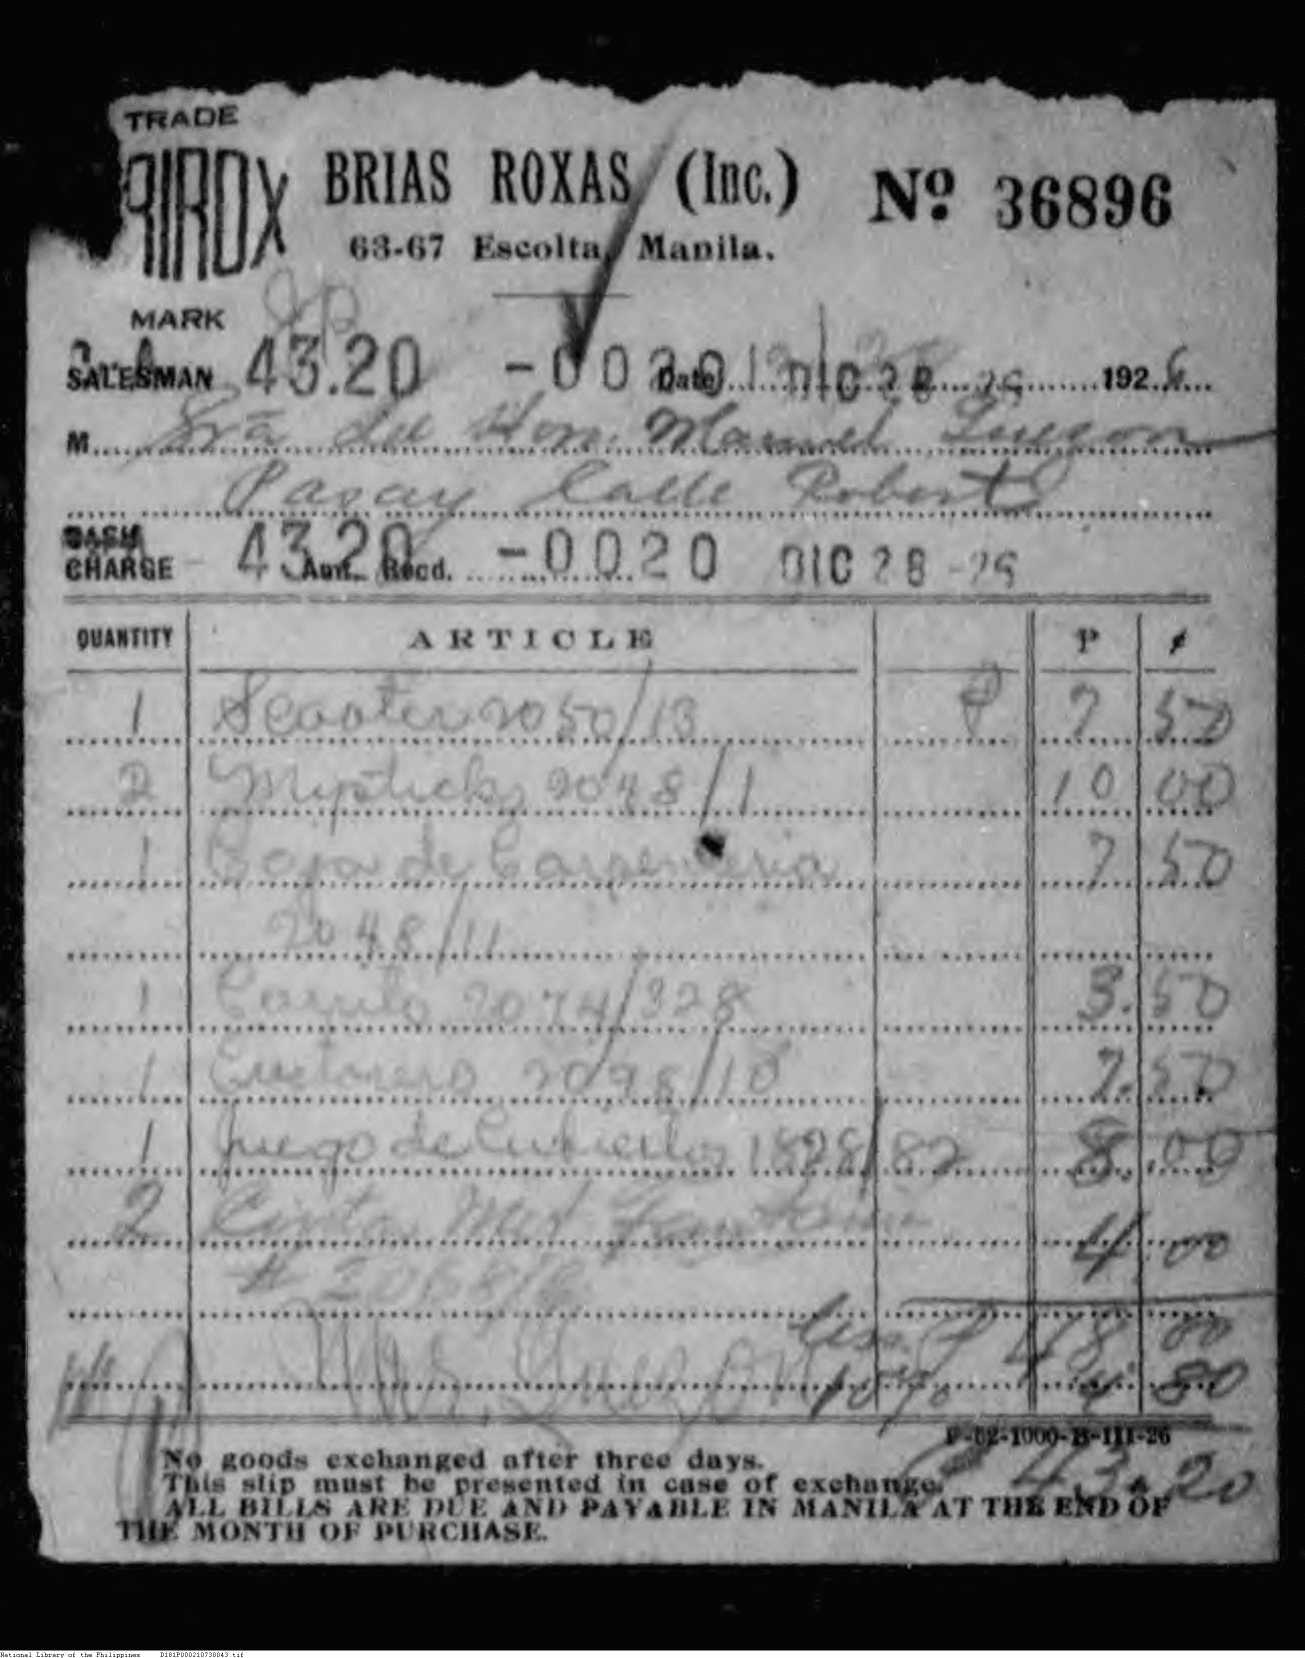 TRADE
BIROX BRIAS ROXAS (Inc.) Nº 36896
63-67 Escolta, Manila.
MARK
SALESMAN 43.20 -0020 Date DIC 28 -26 192 6
M Sra de Hon. Manuel Quezon
Pasay Calle Roberts
CASH
CHARGE 43.20 Amt. Recd. -0020 DIC 28 -26
QUANTITY ARTICLE P ¢
1 Scooter 2050/13 ₱ 7 50
2 Mystick 2048/1 10 00
1 Caja de Carpenteria 7 50
2048/11
1 Carrito 2074/328 3.50
1 2098/10 7.50
1 Juego de Cubiertos 1828/82 8.00
2 Cinta 4 00
Less ₱ 48 00
Mrs. Quezon 10% 4 80
F-62-1000-B-III-26
No goods exchanged after three days.
This slip must be presented in case of exchange. ₱ 43.20
ALL BILLS ARE DUE AND PAYABLE IN MANILA AT THE END OF
THE MONTH OF PURCHASE.
National Library of the Philippines D181P000210738043.tif